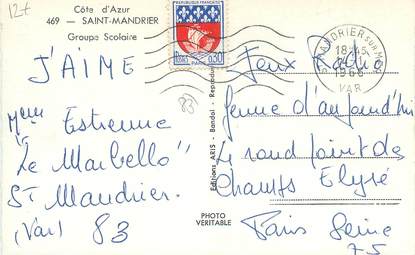 12+
Côte d'Azur
469 — SAINT-MANDRIER
Groupe Scolaire
J'AIME
Mme Estrenne
"Le Marbello"
ST Mandrier
(Var) 83
83
REPUBLIQUE FRANÇAISE
0,30
ST MANDRIER SUR MER
18-45
1966
VAR
Editions ARIS - Bandol - Reprodu
PHOTO
VERITABLE
Jeux Radio
femme d'aujourd'hui
Le rond point des
Champs Elysé
Paris Seine
75